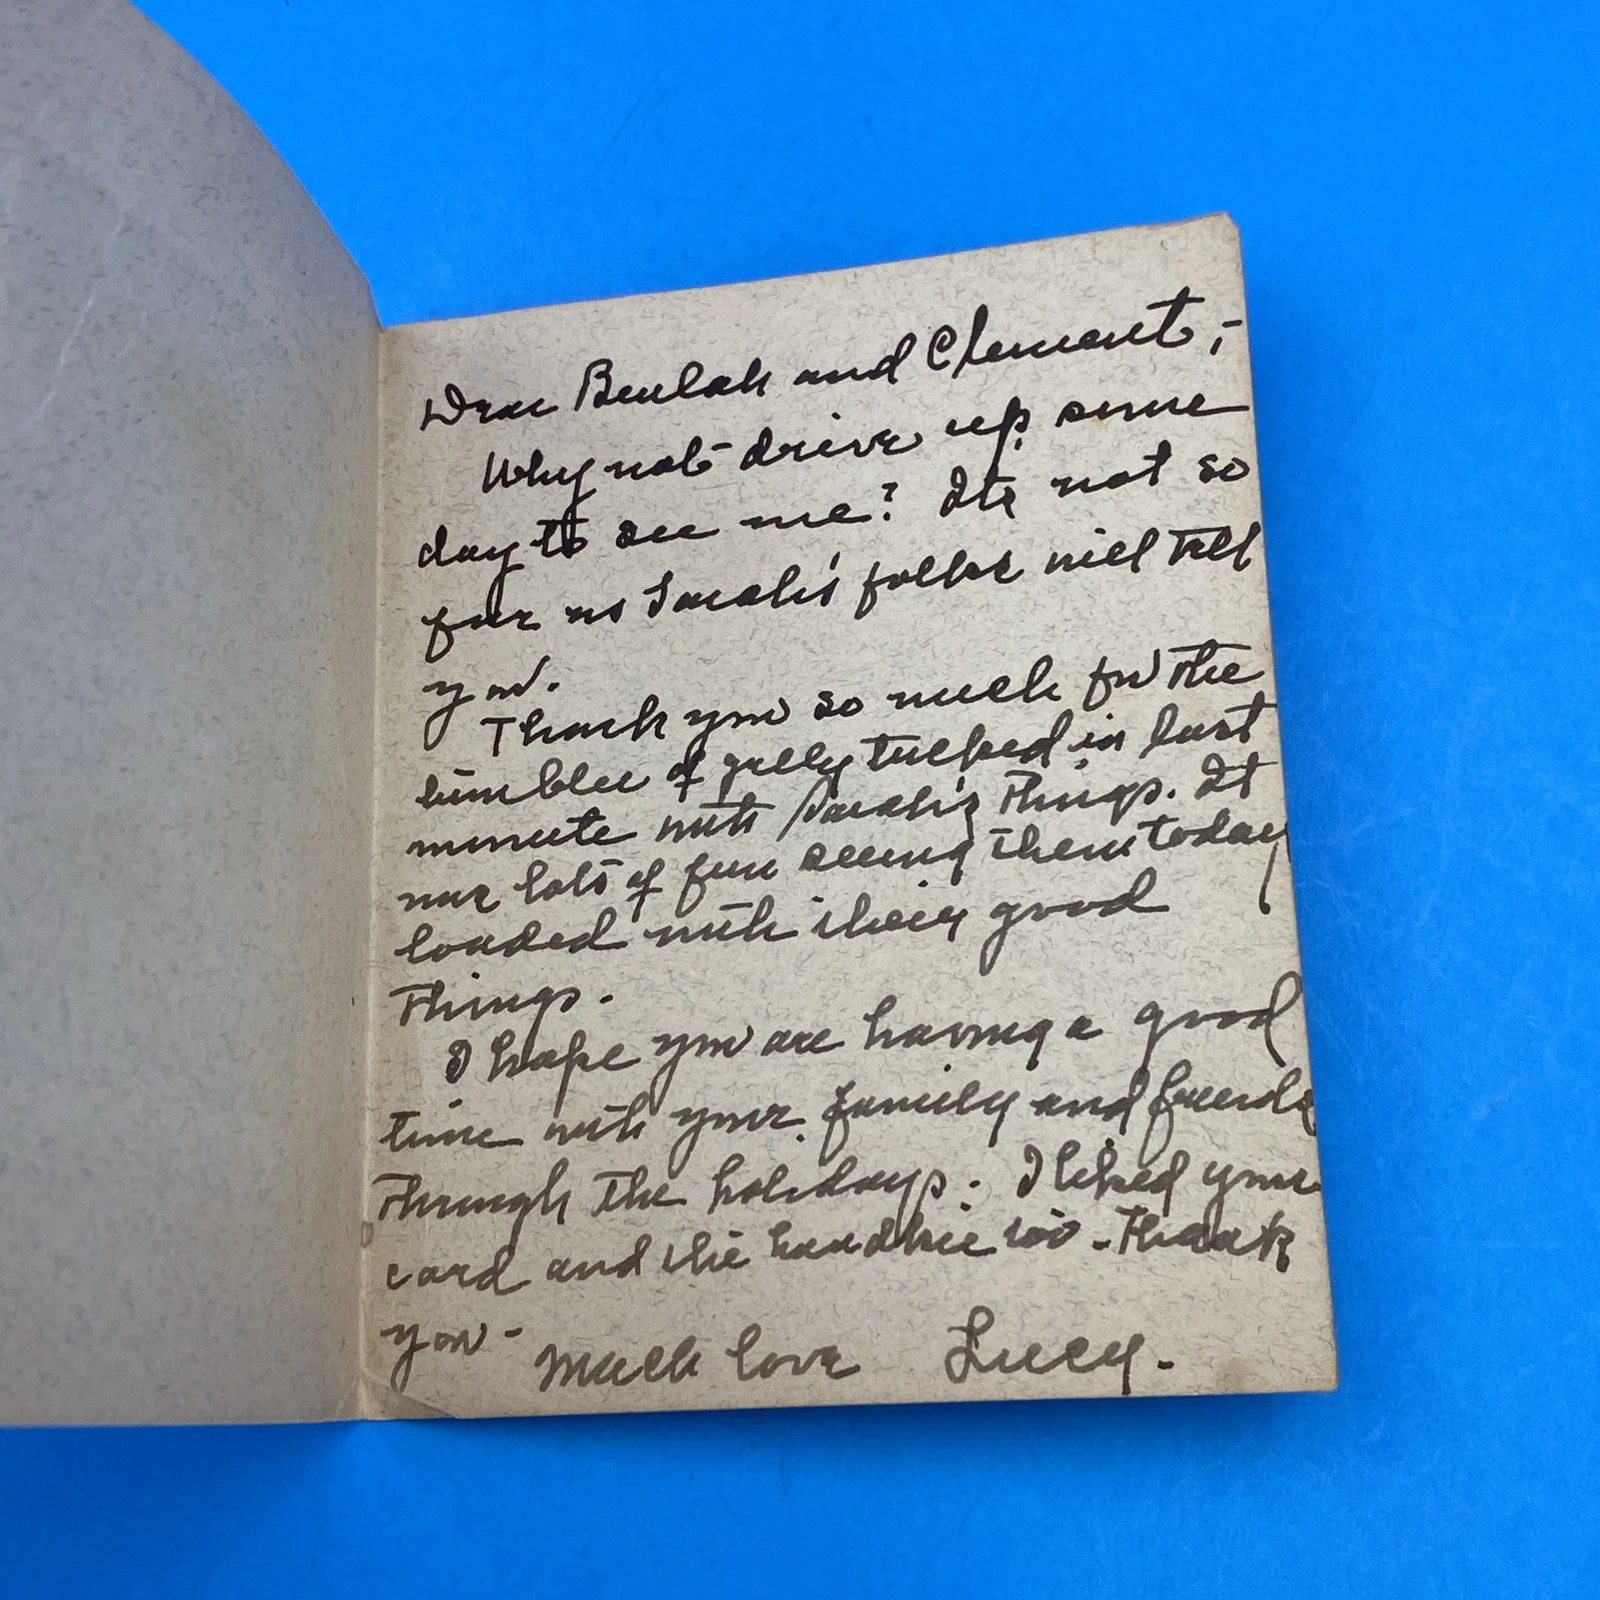 Dear Beulah and Clement,-
Why not drive up some
day to see me? Its not so
far as Sarah's folks will tell
you.
Thank you so much for the
tumbler of jelly tucked in last
minute with Sarah's things. It
was lots of fun seeing them today
loaded with their good
things.
I hope you are having a good
time with your family and friends
through the holidays. I liked your
card and the handkie too - Thank
you -
Much love Lucy.